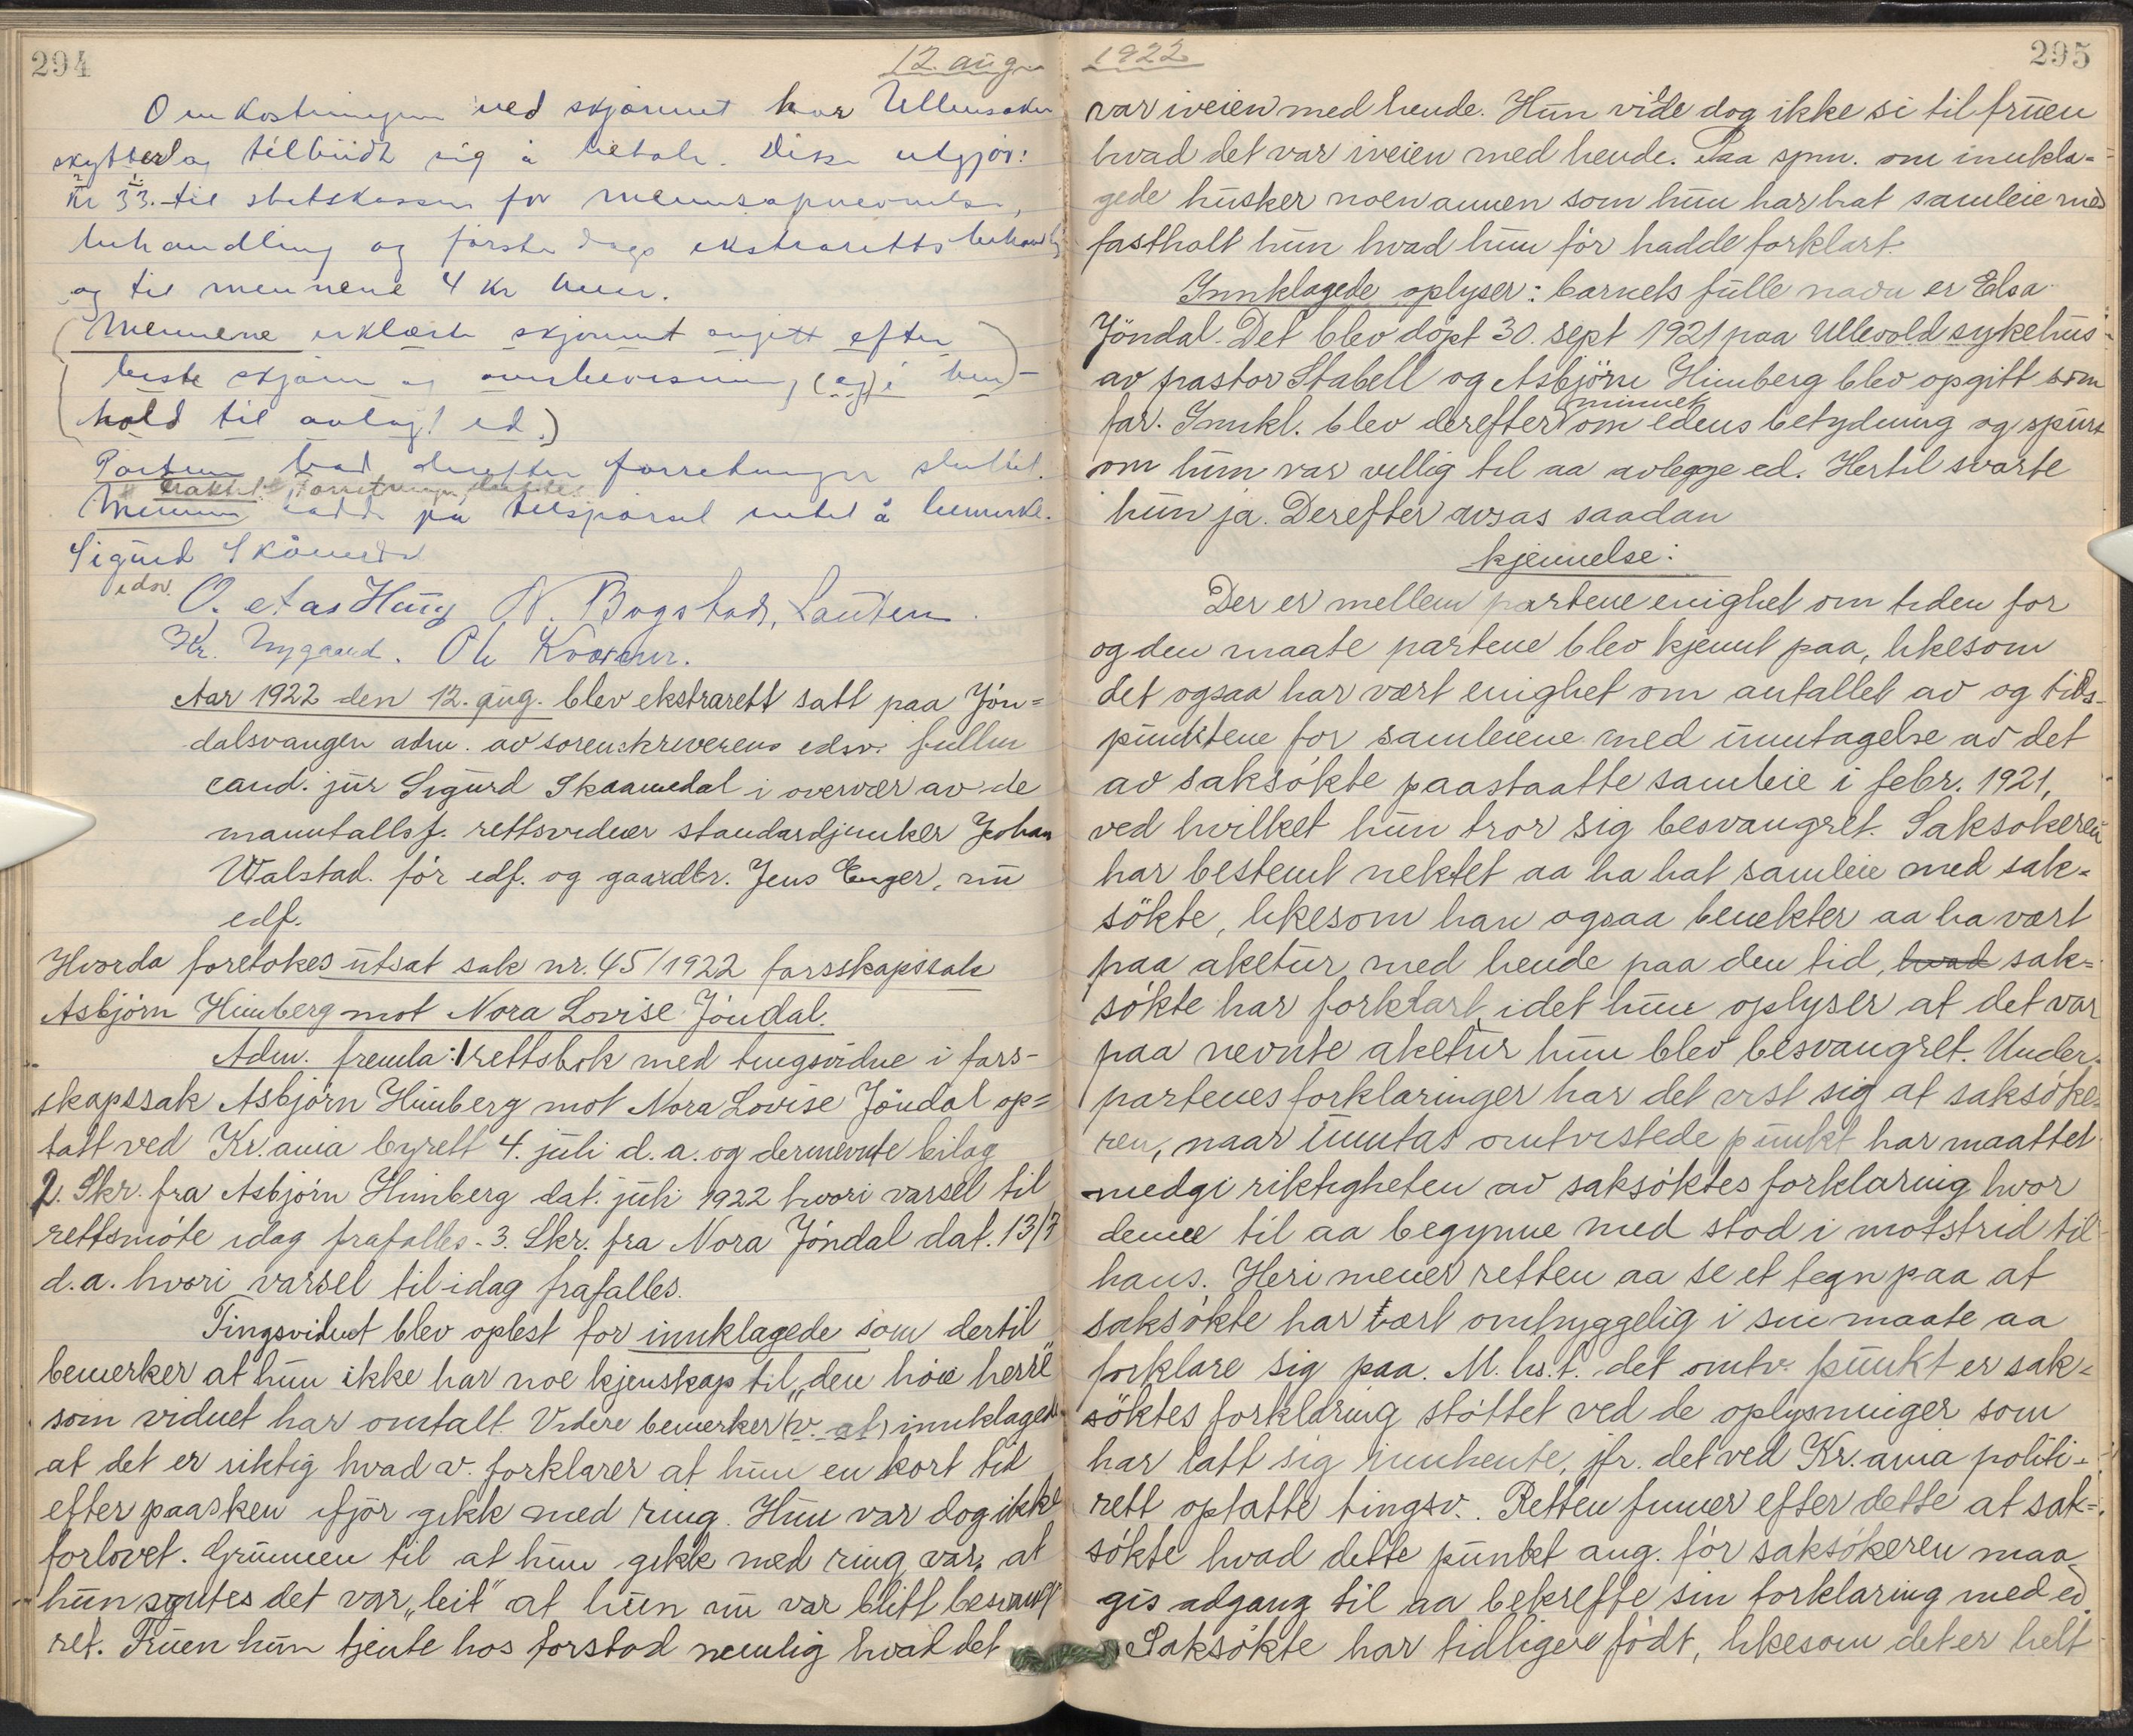 294
12. aug.
Omkostningene ved skjønnet har Ullensaker
skytterlag tilbudt sig å betale. Disse utgjør:
Kr 33.- til statskassen for mennsopnevnelse,
behandling og første dags ekstraretts behandling
og til mennene 4 Kr hver.
(Mennene erklærte skjønnet avgitt efter
beste skjønn og overbevisning (og) i hen-
hold til avlagt ed.)
Partene bad derefter forretningen sluttet.
Mennene hadde på tilspørsel intet å bemerke.
Sigurd Skåmedal
edsv.
O. Aas Haug N. Bogstad, Lauten.
Kr. Nygaard. Ole Kværner.
Aar 1922 den 12. aug. blev ekstrarett satt paa Jön=
dalsvangen adm. av sorenskriverens edsv. fullm
cand. jur Sigurd Skaamedal i overvær av de
manntallsf. rettsvidner standardjunker Johan
Walstad. før edf. og gaardbr. Jens Enger, nu
edf.
Hvorda foretokes utsat sak nr. 45/1922 farsskapssak
Asbjörn Himberg mot Nora Lovise Jöndal.
Adm. fremla: 1 rettsbok med tingsvidne i fars-
skapssak Asbjörn Himberg mot Nora Lovise Jöndal op=
tatt ved Kr.ania byrett 4. juli d.a. og dernevnte bilag
2. Skr. fra Asbjörn Himberg dat. juli 1922 hvori varsel til
rettsmöte idag frafalles. 3. Skr. fra Nora Jöndal dat. 13/7
d.a. hvori varsel til idag frafalles.
Tingsvidnet blev oplest for innklagede som dertil
bemerker at hun ikke har noe kjenskap til „den höie herre"
som vidnet har omtalt. Videre bemerker (v. at) innklagede
at det er riktig hvad v. forklarer at hun en kort tid
efter paasken ifjor gikk med ring. Hun var dog ikke
forlovet. Grunnen til at hun gikk med ring var, at
hun syntes det var „leit" at hun nu var blitt besvang
ret. Fruen hun tjente hos forstod nemlig hvad det
1922
295
var iveien med hende. Hun vilde dog ikke si til fruen
hvad det var iveien med hende. Paa spm. om innkla=
gede husker noen annen som hun har hat samleie med
fastholt hun hvad hun för hadde forklart.
Innklagede oplyser: barnets fulle navn er Elsa
Jöndal. Det blev döpt 30. sept 1921 paa Ullevold sykehus
av pastor Stabell og Asbjörn Himberg blev opgitt som
minnet
far. Innkl. blev derefter om edens betydning og spurt
om hun var villig til aa avlegge ed. Hertil svarte
hun ja. Derefter avsas saadan
kjennelse:
Der er mellem partene enighet om tiden for
og den maate partene blev kjennt paa, likesom
det ogsaa har vært enighet om antallet av og tids-
punktene for samleiene med unntagelse av det
av saksökte paastaatte samleie i febr. 1921,
ved hvilket hun tror sig besvangret. Saksökeren
har bestemt nektet aa ha hat samleie med sak=
sökte, likesom han ogsaa benekter aa ha vært
paa aketur med hende paa den tid, hvad sak=
sökte har forklart, idet hun oplyser at det var
paa nevnte aketur hun blev besvangret. Under
partenes forklaringer har det vist sig at saksöke=
ren, naar unntas omtvistede punkt har maattet
medgi riktigheten av saksöktes forklaring hvor
denne til aa begynne med stod i motstrid til
hans. Heri mener retten aa se et tegn paa at
saksökte har vært omhyggelig i sin maate aa
forklare sig paa. M.hs.t. det omtv. punkt er sak=
söktes forklaring stöttet ved de oplysninger som
har latt sig innhente, jfr. det ved Kr.ania politi=
rett optatte tingsv.. Retten finner efter dette at sak=
sökte hvad dette punkt ang. för saksökeren maa
gis adgang til aa bekrefte sin forklaring med ed.
Saksökte har tidligere födt, likesom det er helt